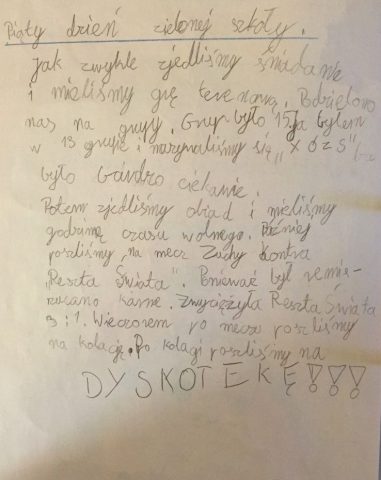 Piąty dzień zielonej szkoły.
Jak zwykle zjedliśmy śniadanie
i mieliśmy grę terenową. Podzielono
nas na grupy. Grup było 15. Ja byłem
w 13 grupie i nazywaliśmy się „X Ó Z S"
było bardzo ciekawie.
Potem zjedliśmy obiad i mieliśmy
godzinę czasu wolnego. Później
poszliśmy na mecz Zuchy kontra
„Reszta Świata". Ponieważ był remis
rzucano karne. Zwyciężyła Reszta Świata
3:1. Wieczorem po meczu poszliśmy
na kolację. Po kolacji poszliśmy na
DYSKOTEKĘ!!!